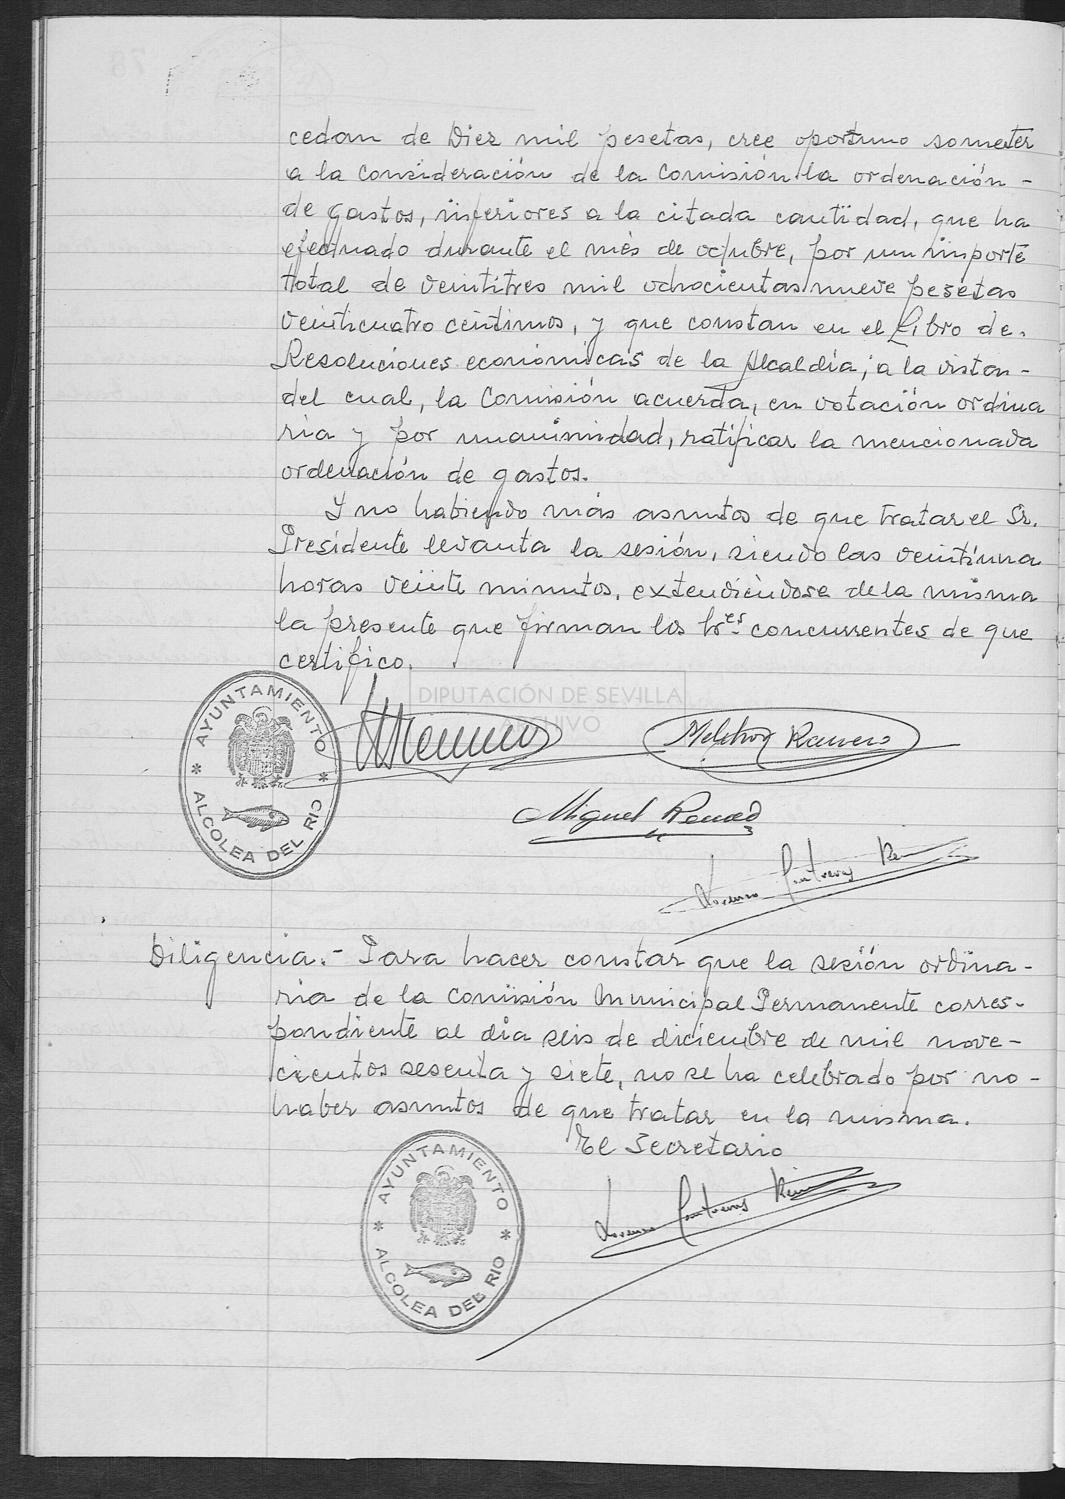 cedan de Diez mil pesetas, cree oportuno someter
a la Consideración de la Comisión la ordenación -
de gastos, inferiores a la citada cantidad, que ha
efectuado durante el mes de octubre, por un importe
total de veintitres mil ochocientas nueve pesetas
veinticuatro centimos, y que constan en el Libro de.
Resoluciones economicas de la Alcaldía; a la vista -
del cual, la Comisión acuerda, en votación ordina
ria y por unanimidad, ratificar la mencionada
ordenación de gastos.
Y no habiendo más asuntos de que tratar el Sr.
Presidente levanta la sesión, siendo las veintiuna
horas veinte minutos, extendiéndose de la misma
la presente que firman los Sres concurrentes de que
certifico.
DIPUTACIÓN DE SEVILLA
ARCHIVO
AYUNTAMIENTO
* ALCOLEA DEL RIO *
Miguel
Lorenzo
Diligencia.- Para hacer constar que la sesión ordina-
ria de la Comisión Municipal Permanente corres-
pondiente al día seis de diciembre de mil nove-
cientos sesenta y siete, no se ha celebrado por no -
haber asuntos de que tratar en la misma.
El Secretario
AYUNTAMIENTO
* ALCOLEA DEL RIO *
Lorenzo